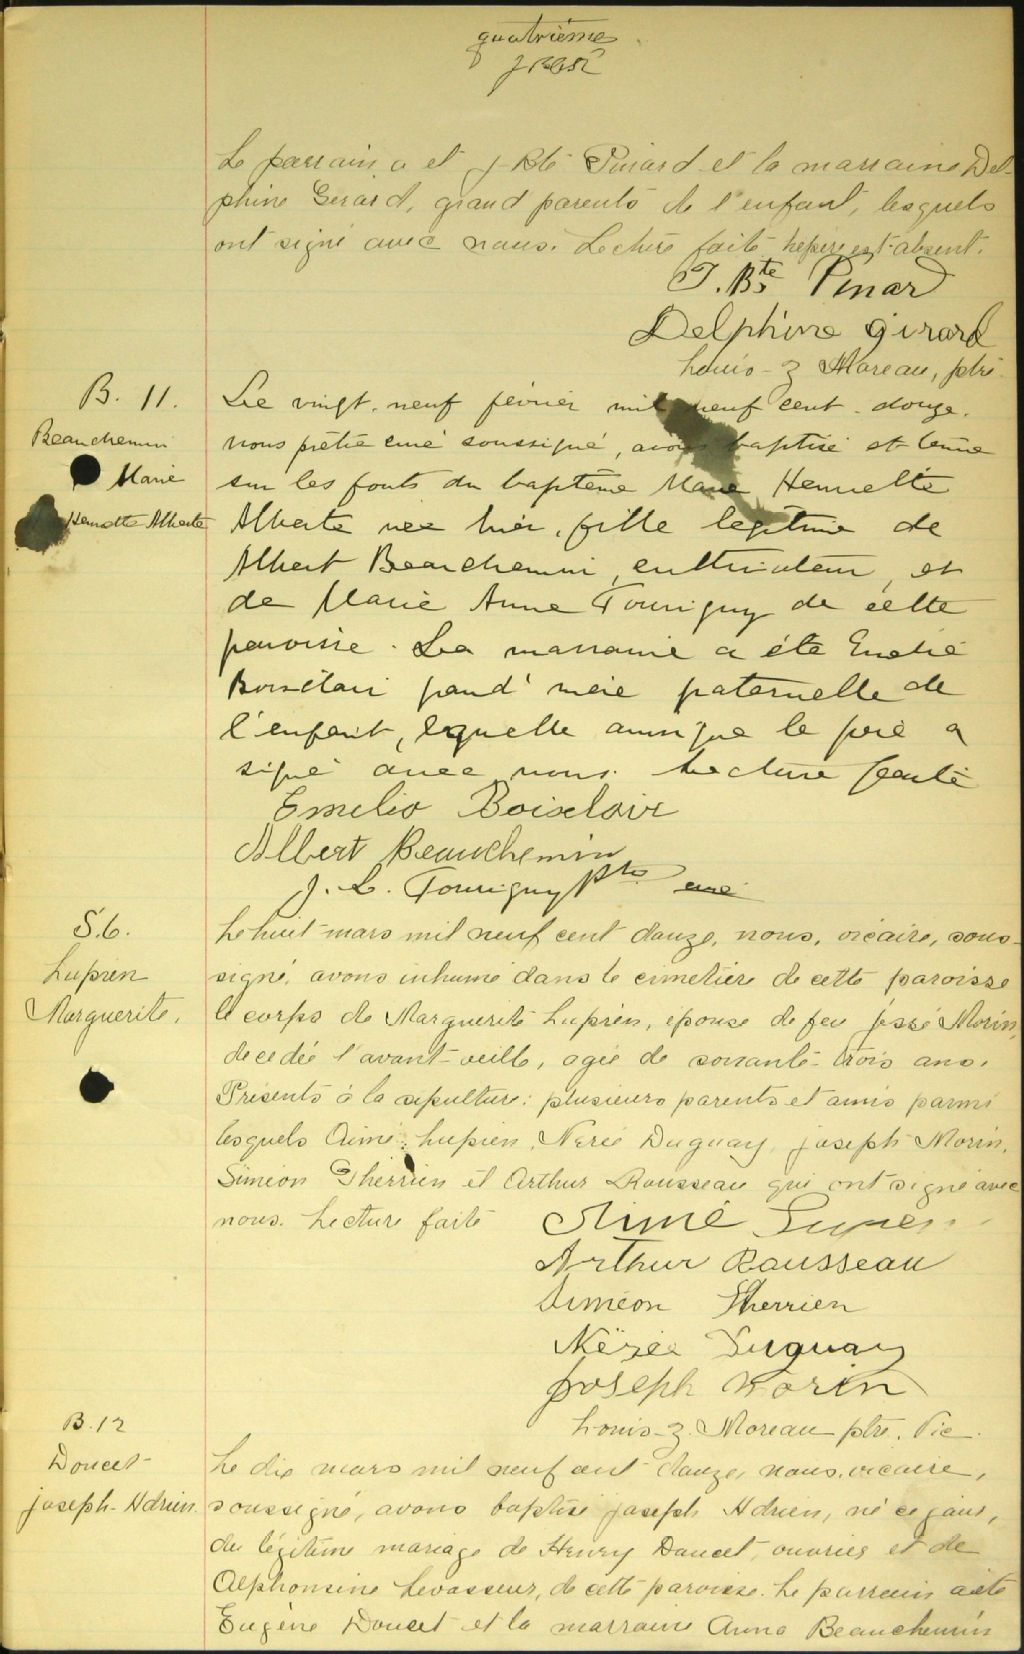 quatrième
Le parrain a et J-Bte Pinard et la marraine Del-
phine Gerard, grand parents de l'enfant, lesquels
ont signé avec nous. Lecture faite le père est absent.
J. Bte Pinard
Delphine Girard
Louis-Z Moreau, ptre.
B. 11.
Beauchemin
Marie
Henriette Alberte
Le vingt-neuf février mil neuf cent douze,
nous prêtre curé soussigné, avons baptisé et tenu
sur les fonts du baptême Marie Henriette
Alberte née hier, fille légitime de
Albert Beauchemin, cultivateur, et
de Marie Anne Tourigny de cette
paroisse. La marraine a été Emelie
Boisclair grand' mère paternelle de
l'enfant, laquelle ainsi que le père a
signé avec nous. Lecture faite
Emelie Boisclair
Albert Beauchemin
J. L. Tourigny Ptre curé
S.6.
Lupien
Marguerite,
Le huit mars mil neuf cent douze, nous, vicaire, sous-
signé, avons inhumé dans le cimetière de cette paroisse
le corps de Marguerite Lupien, épouse de feu Jessé Morin,
decedée l'avant-veille, agée de soixante-trois ans.
Présents à la sépulture: plusieurs parents et amis parmi
lesquels Aimé Lupien, Nérée Duguay, Joseph Morin,
Siméon Therrien et Arthur Rousseau qui ont signé avec
nous. Lecture faite
Aimé Lupien
Arthur Rousseau
Siméon Therrien
Nérée Duguay
Joseph Morin
Louis-Z. Moreau ptre. Vic.
B.12
Doucet
Joseph-Adrien.
Le dix mars mil neuf cent douze, nous, vicaire,
soussigné, avons baptisé Joseph Adrien, né ce jour,
du légitime mariage de Henry Doucet, ouvrier et de
Alphonsine Levasseur, de cette paroisse. Le parrain a été
Eugène Doucet et la marraine Anna Beauchemin